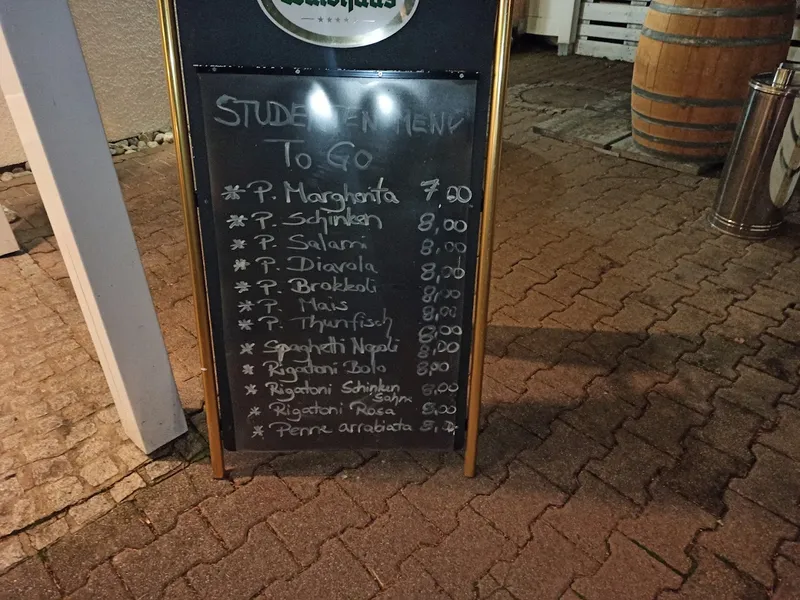 Waldhaus
STUDENTEN MENU
To Go
* P. Margherita 7,00
* P. Schinken 8,00
* P. Salami 8,00
* P. Diavola 8,00
* P. Brokkoli 8,00
* P. Mais 8,00
* P. Thunfisch 8,00
* Spaghetti Napoli 8,00
* Rigatoni Bolo 8,00
* Rigatoni Schinken 8,00
Sahne
* Rigatoni Rosa 8,00
* Penne arrabiata 8,00